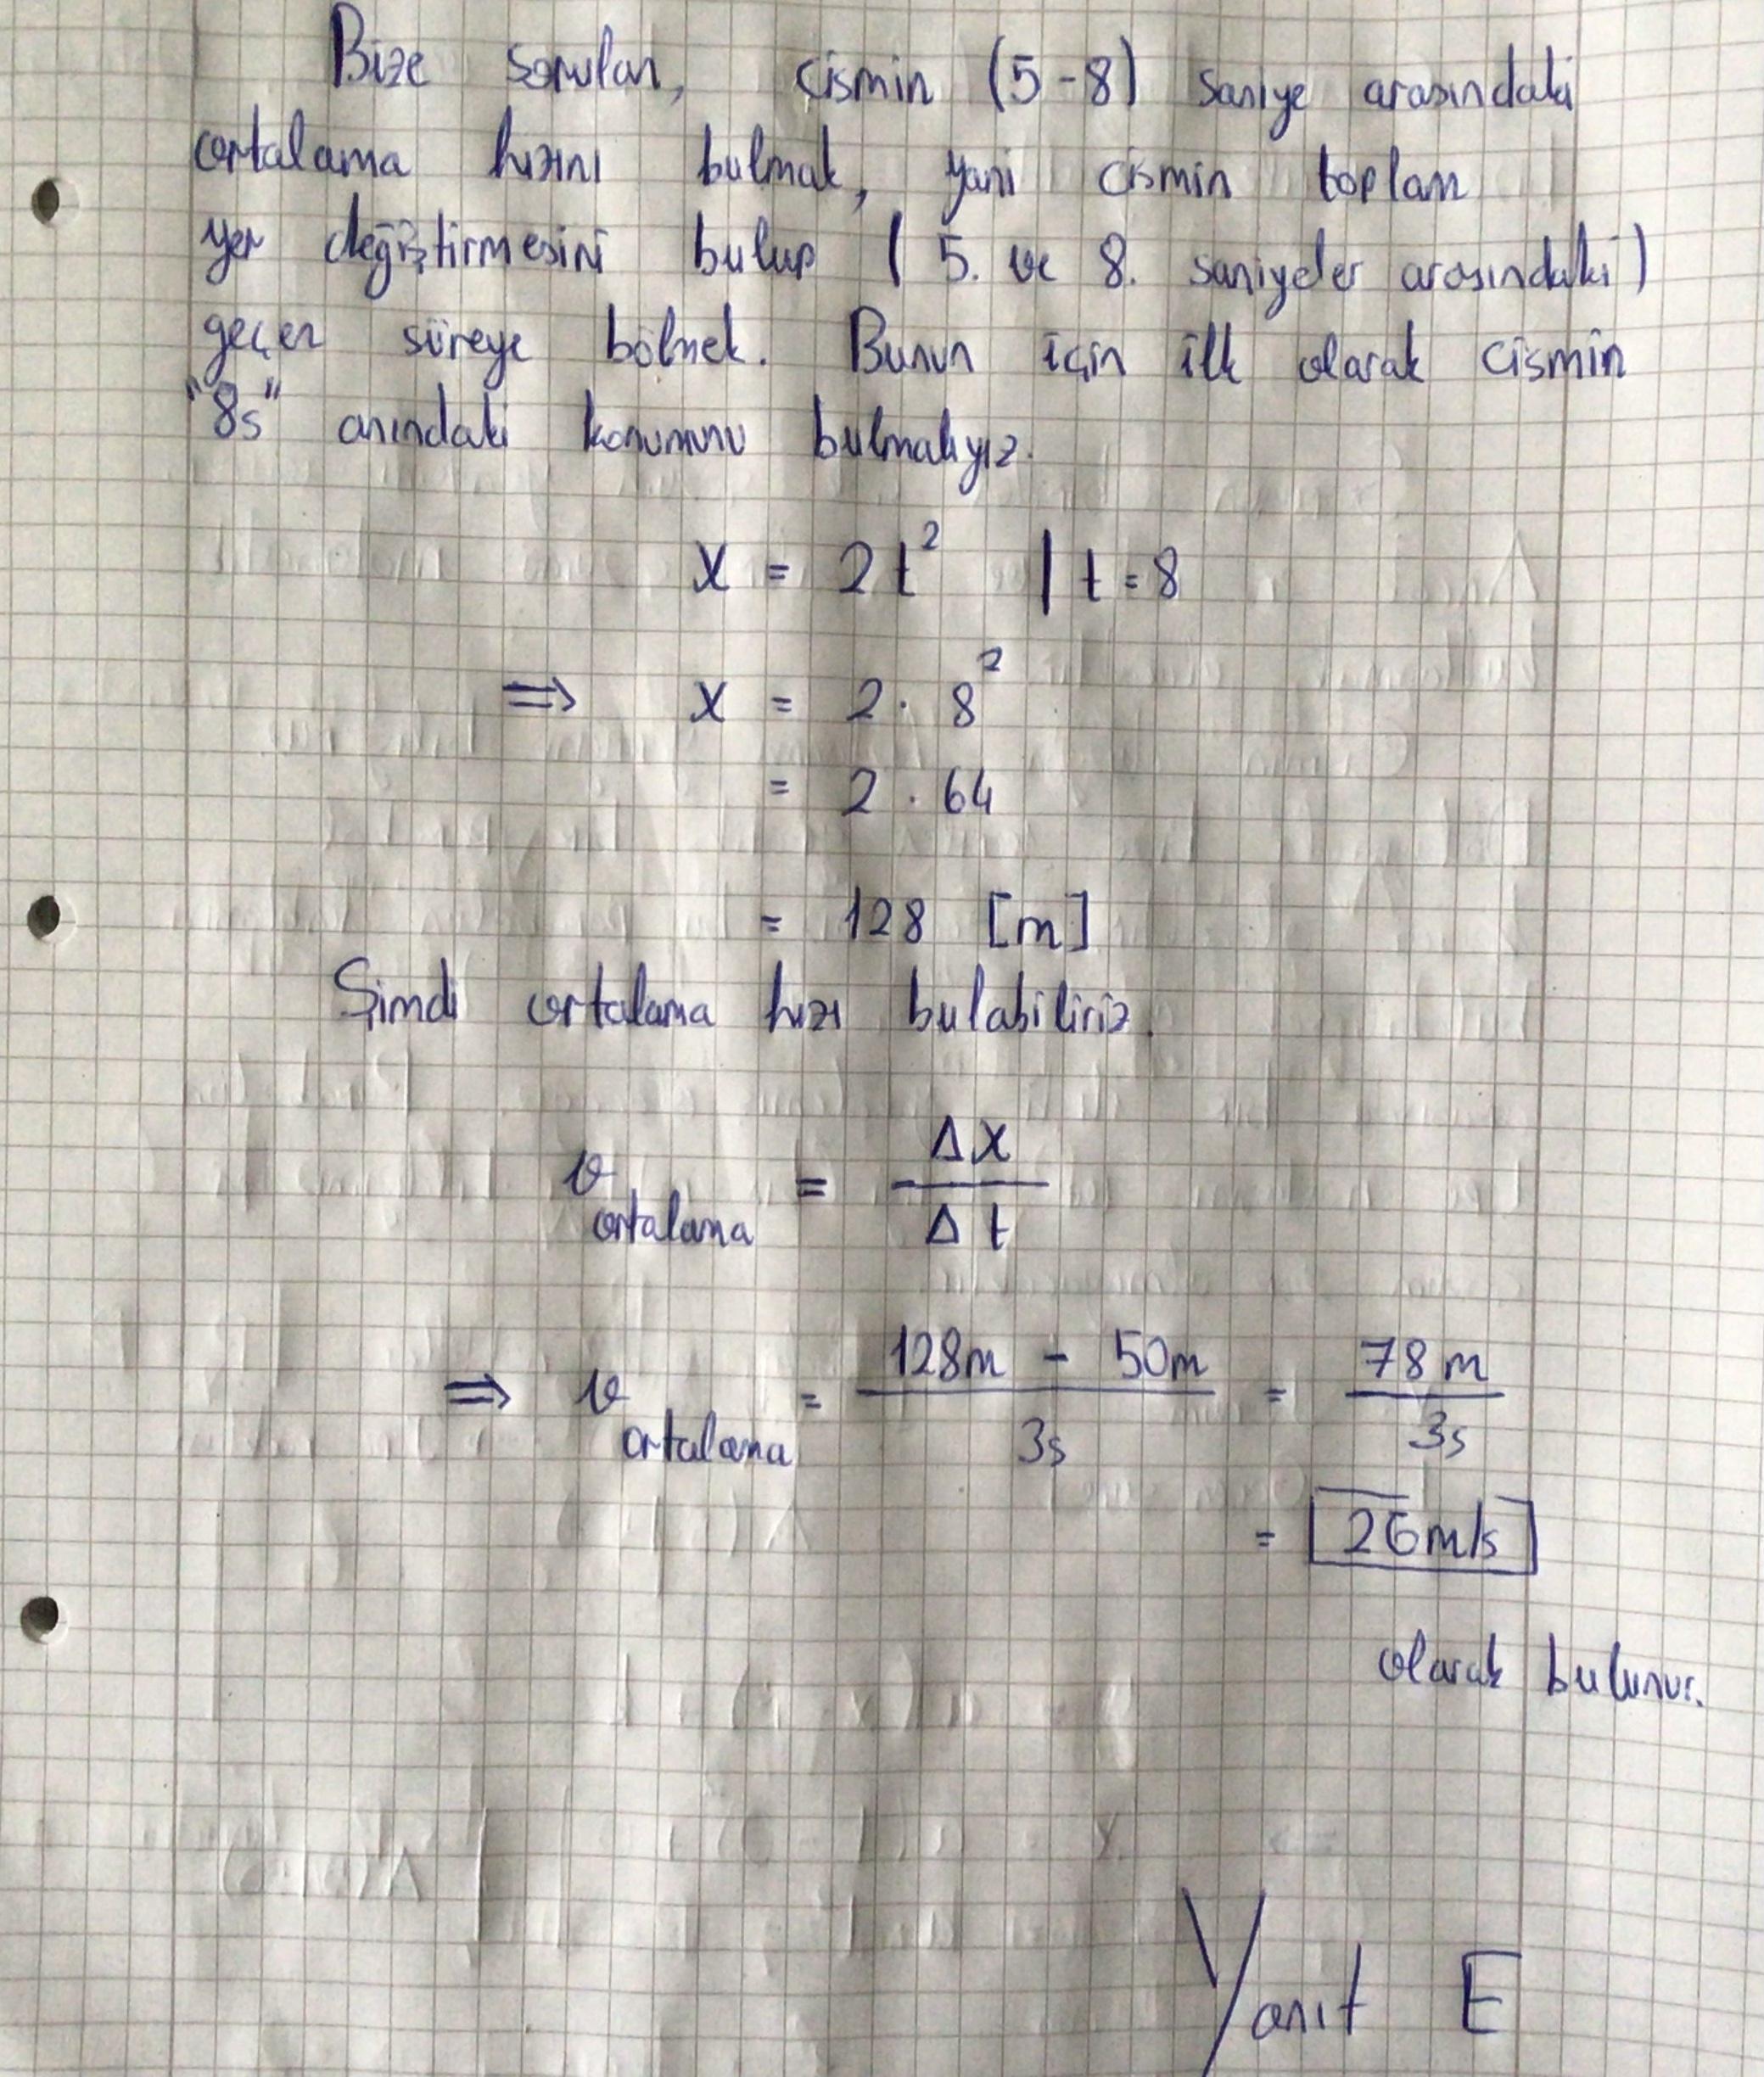 Bize sorulan, cismin (5-8) saniye arasındaki
ortalama hızını bulmak, yani cismin toplam
yer değiştirmesini bulup (5. ve 8. saniyeler arasındaki)
geçen süreye bölmek. Bunun için ilk olarak cismin
"8s" anındaki konumunu bulmalıyız.
x = 2t² | t = 8
⇒ x = 2 · 8²
= 2 · 64
= 128 [m]
Şimdi ortalama hızı bulabiliriz.
v ortalama = Δx / Δt
⇒ v ortalama = 128m - 50m / 3s = 78m / 3s
= 26m/s
olarak bulunur.
Yanıt E